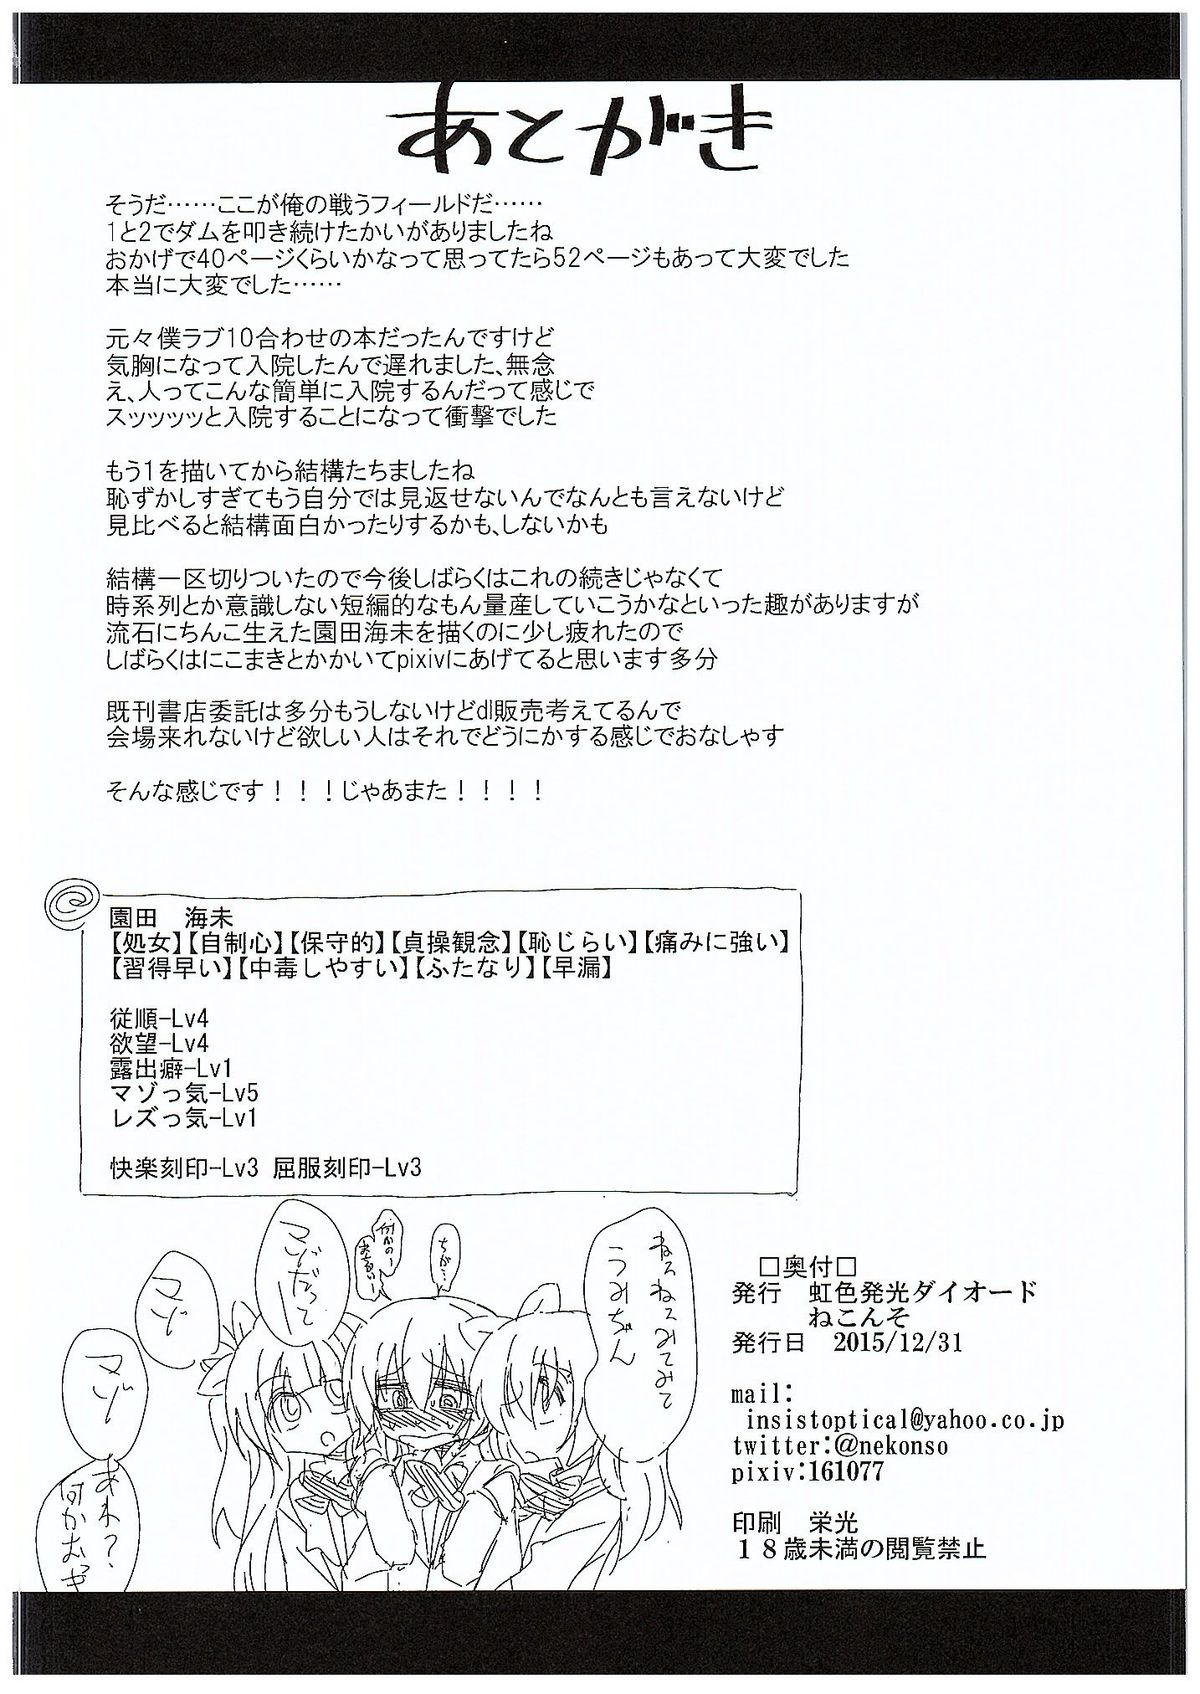 あとがき
そうだ……ここが俺の戦うフィールドだ……
1と2でダムを叩き続けたかいがありましたね
おかげで40ページくらいかなって思ってたら52ページもあって大変でした
本当に大変でした……
元々僕ラブ10合わせの本だったんですけど
気胸になって入院したんで遅れました､無念
え､人ってこんな簡単に入院するんだって感じで
スッッッッと入院することになって衝撃でした
もう1を描いてから結構たちましたね
恥ずかしすぎてもう自分では見返せないんでなんとも言えないけど
見比べると結構面白かったりするかも､しないかも
結構一区切りついたので今後しばらくはこれの続きじゃなくて
時系列とか意識しない短編的なもん量産していこうかなといった趣がありますが
流石にちんこ生えた園田海未を描くのに少し疲れたので
しばらくはにこまきとかかいてpixivにあげてると思います多分
既刊書店委託は多分もうしないけどdl販売考えてるんで
会場来れないけど欲しい人はそれでどうにかする感じでおなしゃす
そんな感じです！！！じゃあまた！！！！
園田　海未
【処女】【自制心】【保守的】【貞操観念】【恥じらい】【痛みに強い】
【習得早い】【中毒しやすい】【ふたなり】【早漏】
従順-Lv4
欲望-Lv4
露出癖-Lv1
マゾっ気-Lv5
レズっ気-Lv1
快楽刻印-Lv3 屈服刻印-Lv3
ねえねえみてみて
うみちゃん
ちが…
何かのー
マゾだって
マゾ
マゾ
あれ？
何かおっき
□奥付□
発行　虹色発光ダイオード
ねこんそ
発行日　2015/12/31
mail:
insistoptical@yahoo.co.jp
twitter:@nekonso
pixiv:161077
印刷　栄光
１８歳未満の閲覧禁止